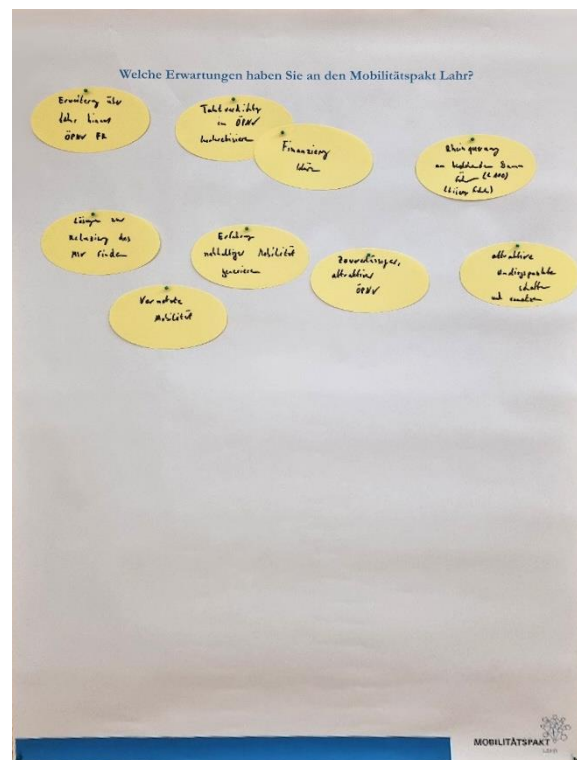 Welche Erwartungen haben Sie an den Mobilitätspakt Lahr?
Erweiterung über
Lahr hinaus
ÖPNV FR
Taktverdichtung
im ÖPNV
Finanzierung
klären
Rheinquerung
am bestehenden Damm
(L100)
Lösungen zur
Reduzierung des
MIV finden
Erfahrung
nachhaltiger Mobilität
generieren
Zuverlässiger,
attraktiver
ÖPNV
attraktive
schaffen
und vernetzen
Vernetzte
Mobilität
MOBILITÄTSPAKT
LAHR